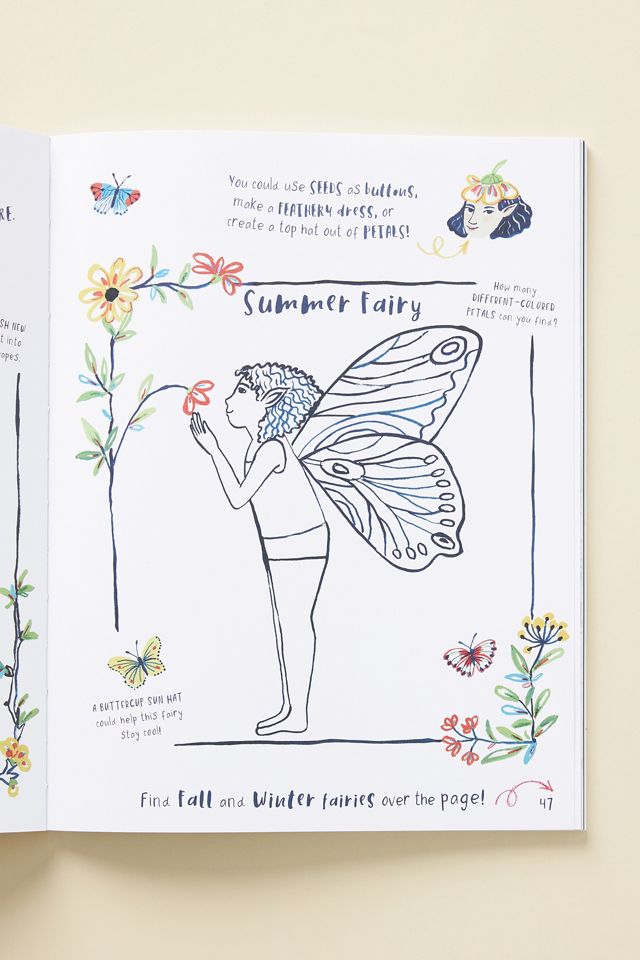 RE.
SH NEW
t into
apes.
You could use SEEDS as buttons,
make a FEATHERY dress, or
create a top hat out of PETALS!
Summer Fairy
How many
DIFFERENT-COLORED
PETALS can you find?
A BUTTERCUP SUN HAT
could help this fairy
stay cool!
Find Fall and Winter fairies over the page!
47